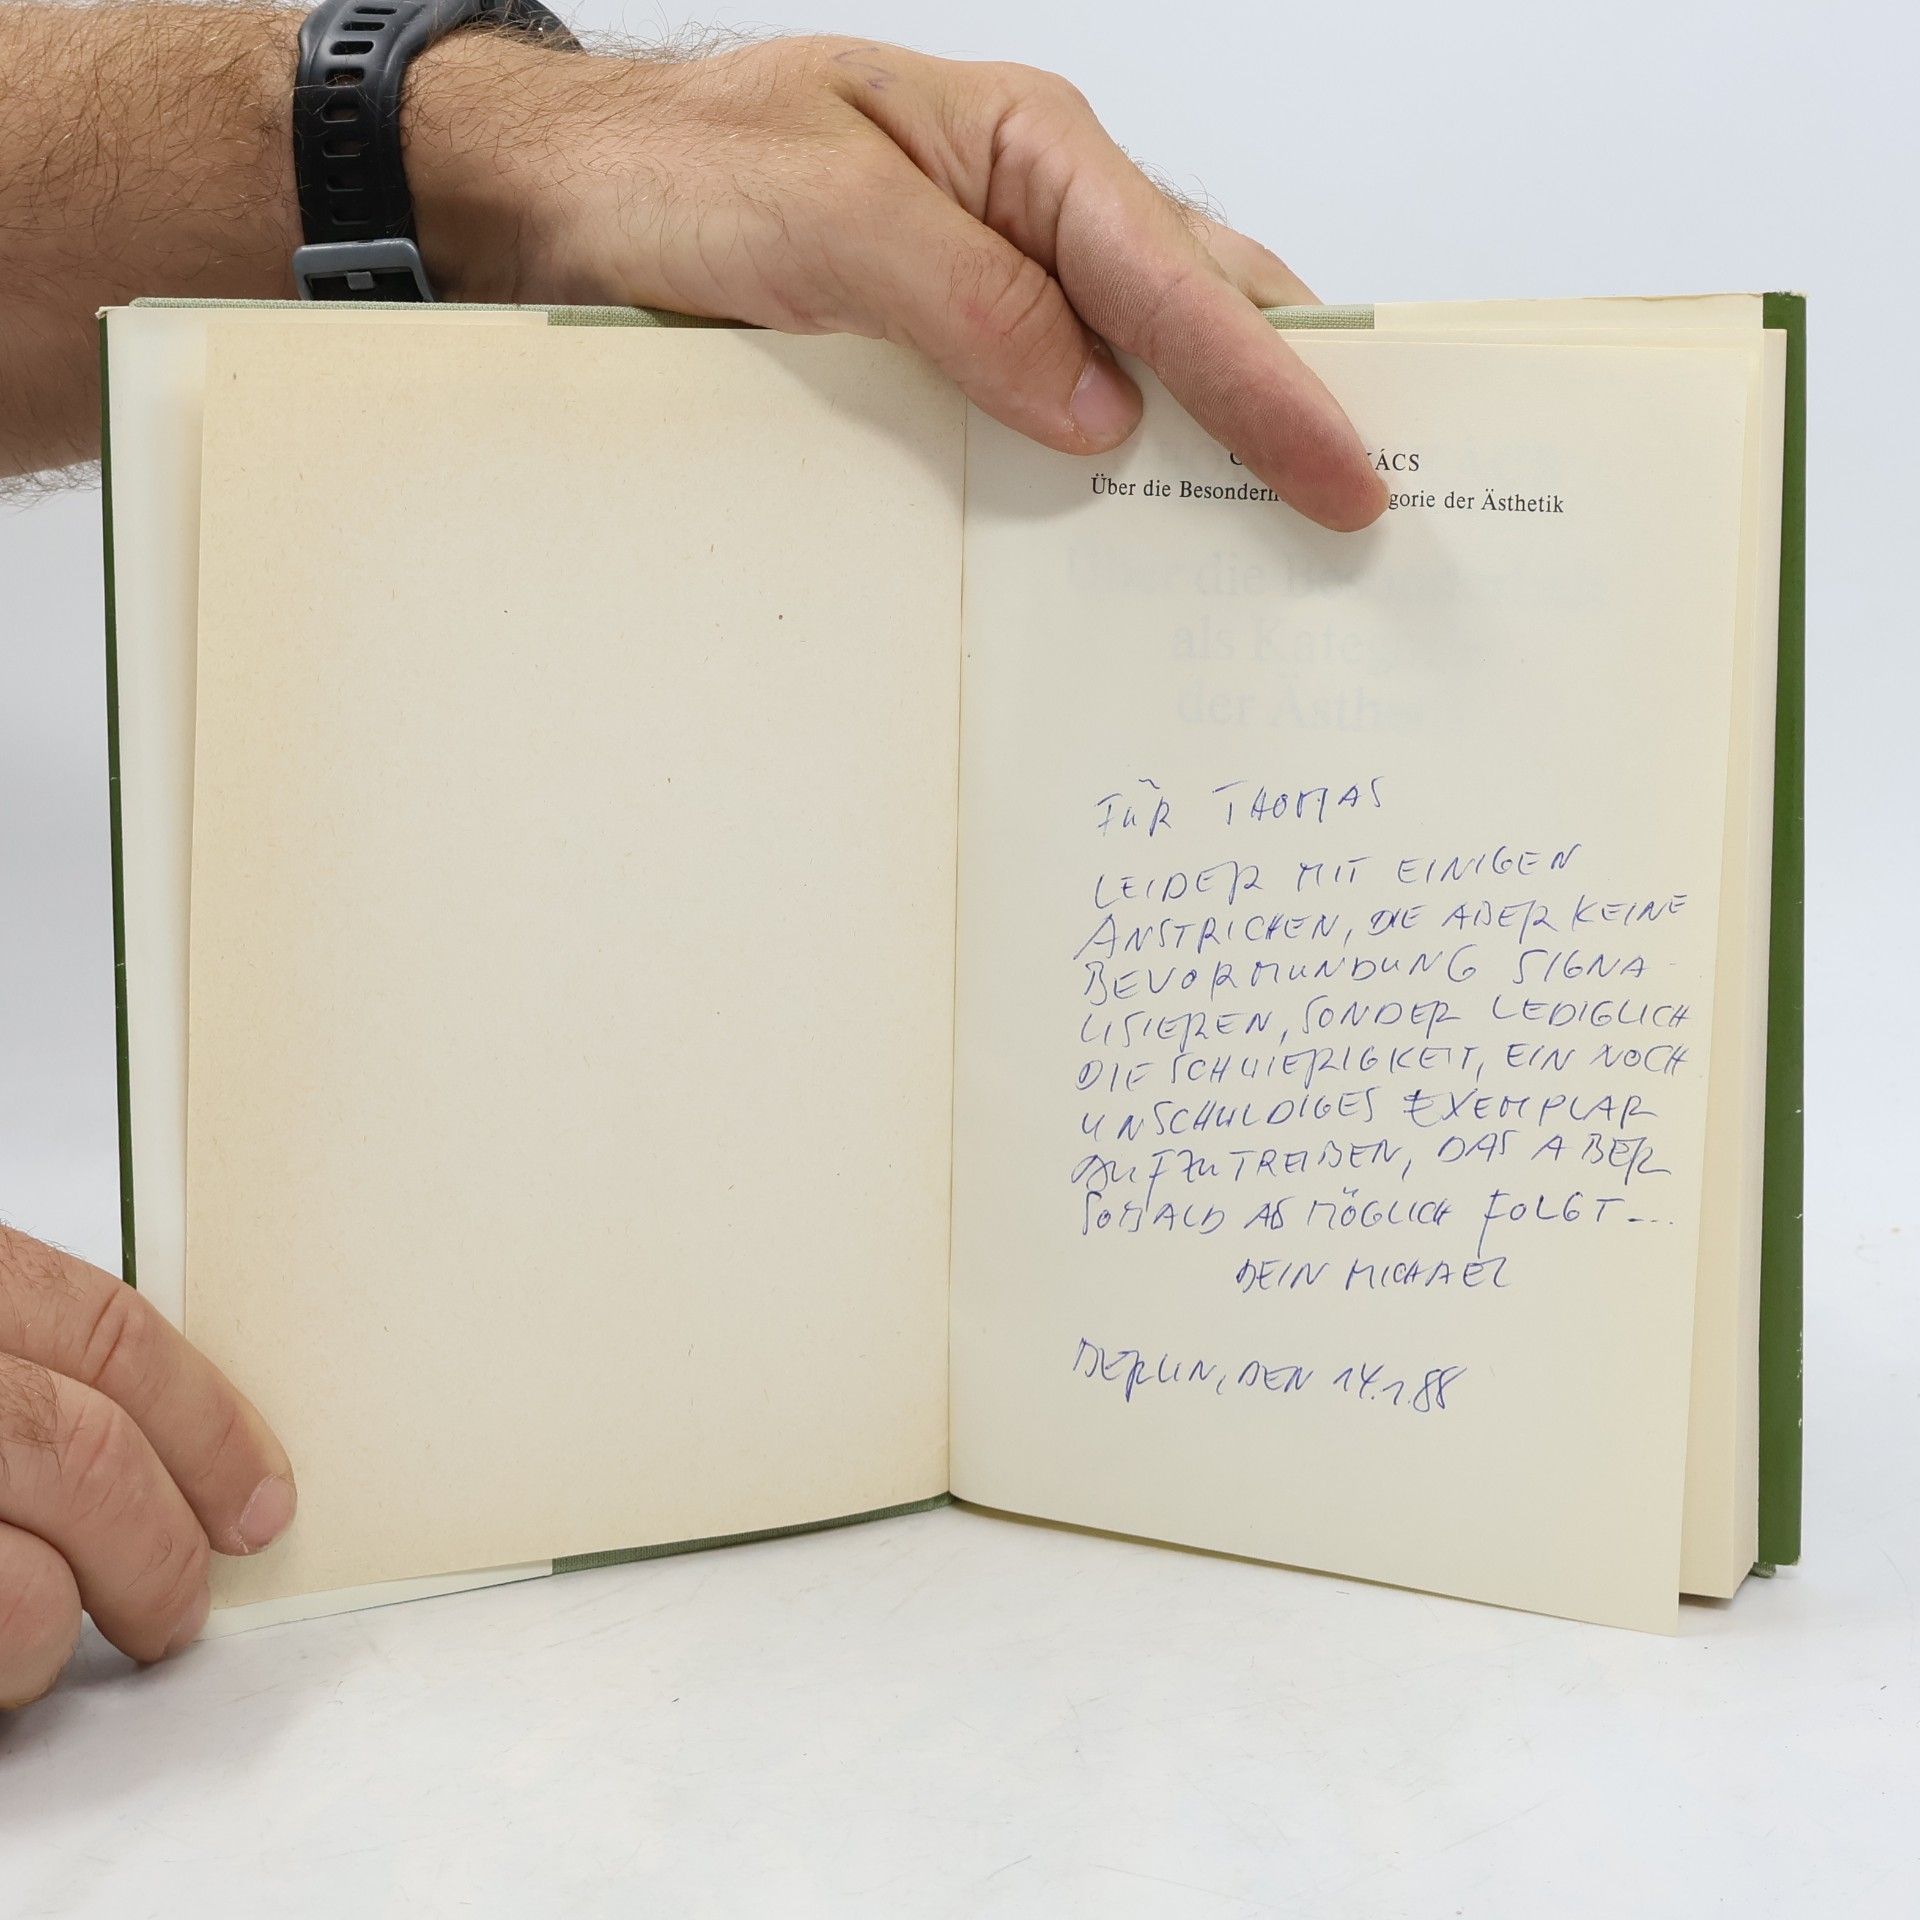 KÁCS
Über die Besonderh gorie der Ästhetik
Über die
als Kateg
der Ästhe
FÜR THOMAS
LEIDER MIT EINIGEN
ANSTRICHEN, DIE ABER KEINE
BEVORMUNDUNG SIGNA-
LISIEREN, SONDER LEDIGLICH
DIE SCHWIERIGKEIT, EIN NOCH
UNSCHULDIGES EXEMPLAR
AUFZUTREIBEN, DAS ABER
SOBALD ALS MÖGLICH FOLGT ---
DEIN MICHAEL
BERLIN, DEN 14.1.88